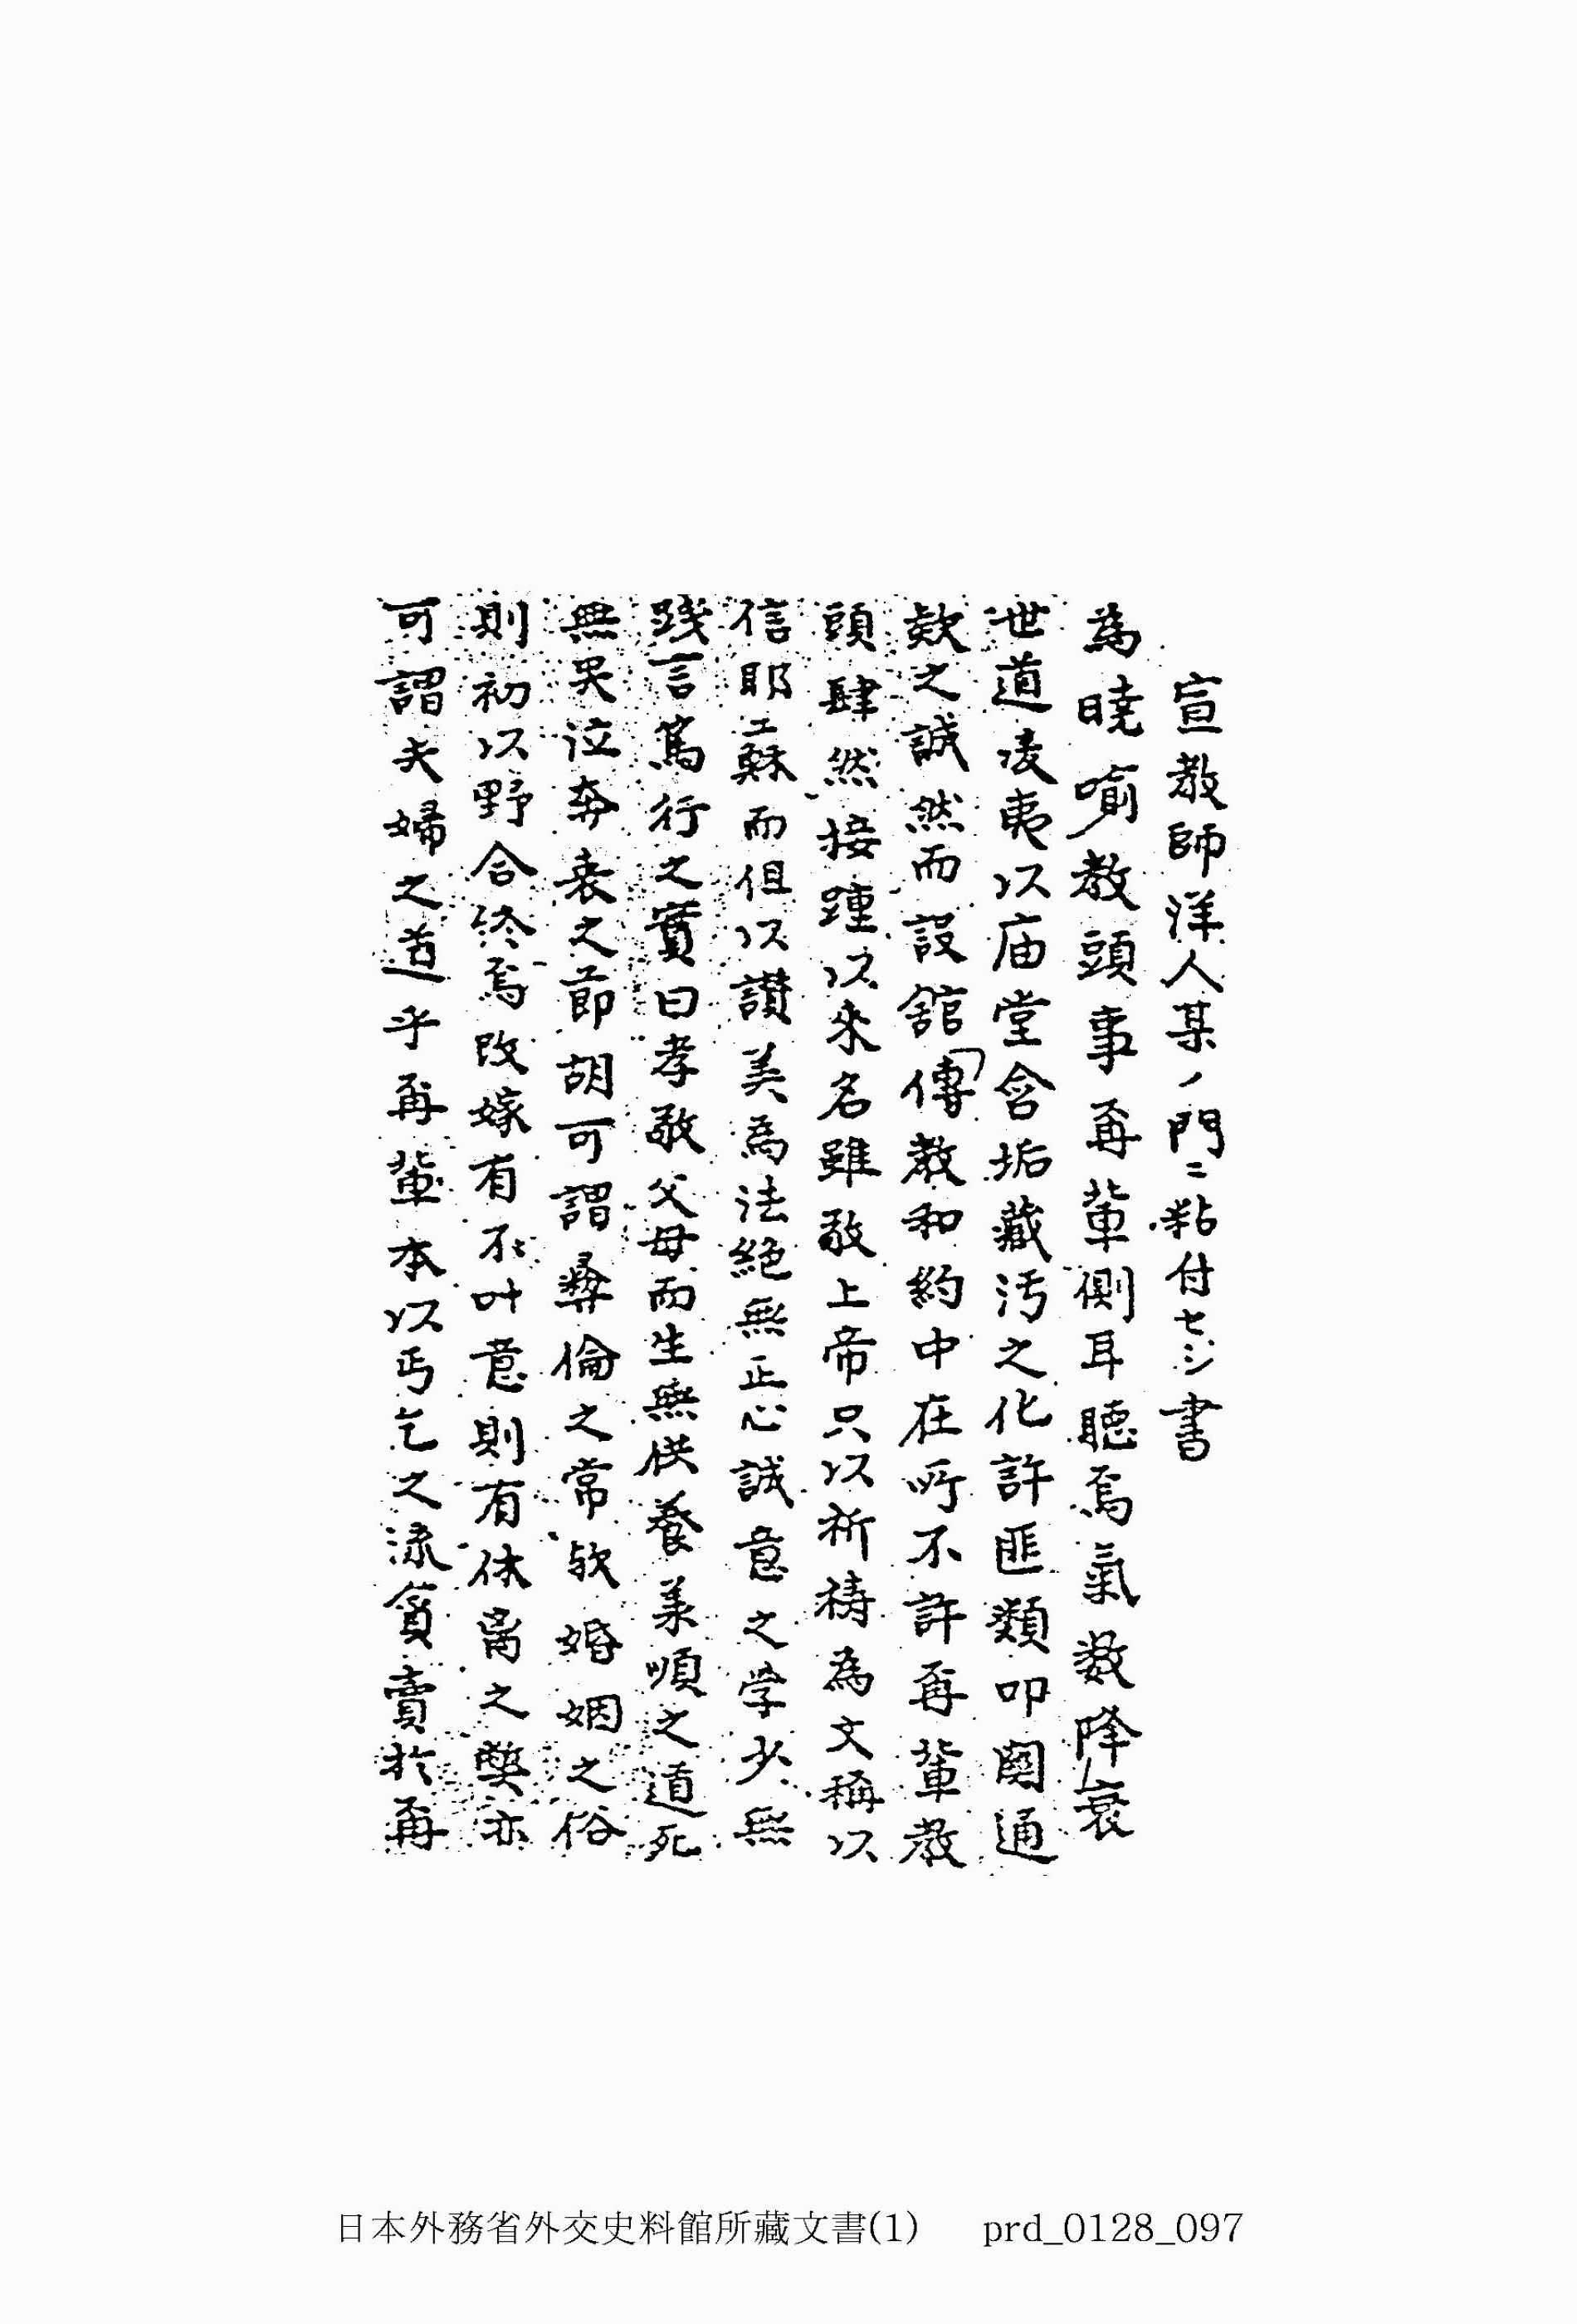 宣教師洋人某ノ門ニ粘付セシ書
為曉喩教頭事爾輩側耳聽焉氣數降衰
世道凌夷以庙堂含垢藏汚之化許匪類叩関通
欵之誠然而設舘傳教和約中在所不許爾輩教
頭肆然接踵以来名雖敬上帝只以祈祷為文稱以
信耶蘇而但以讃美為法絶無正心誠意之学少無
践言篤行之實曰孝敬父母而生無供養承順之道死
無哭泣奔喪之節胡可謂彜倫之常欤婚姻之俗
則初以野合終焉改嫁有不叶意則有休离之弊亦
可謂夫婦之道乎爾輩本以丐乞之流貪賣於爾
日本外務省外交史料館所藏文書(1) prd_0128_097